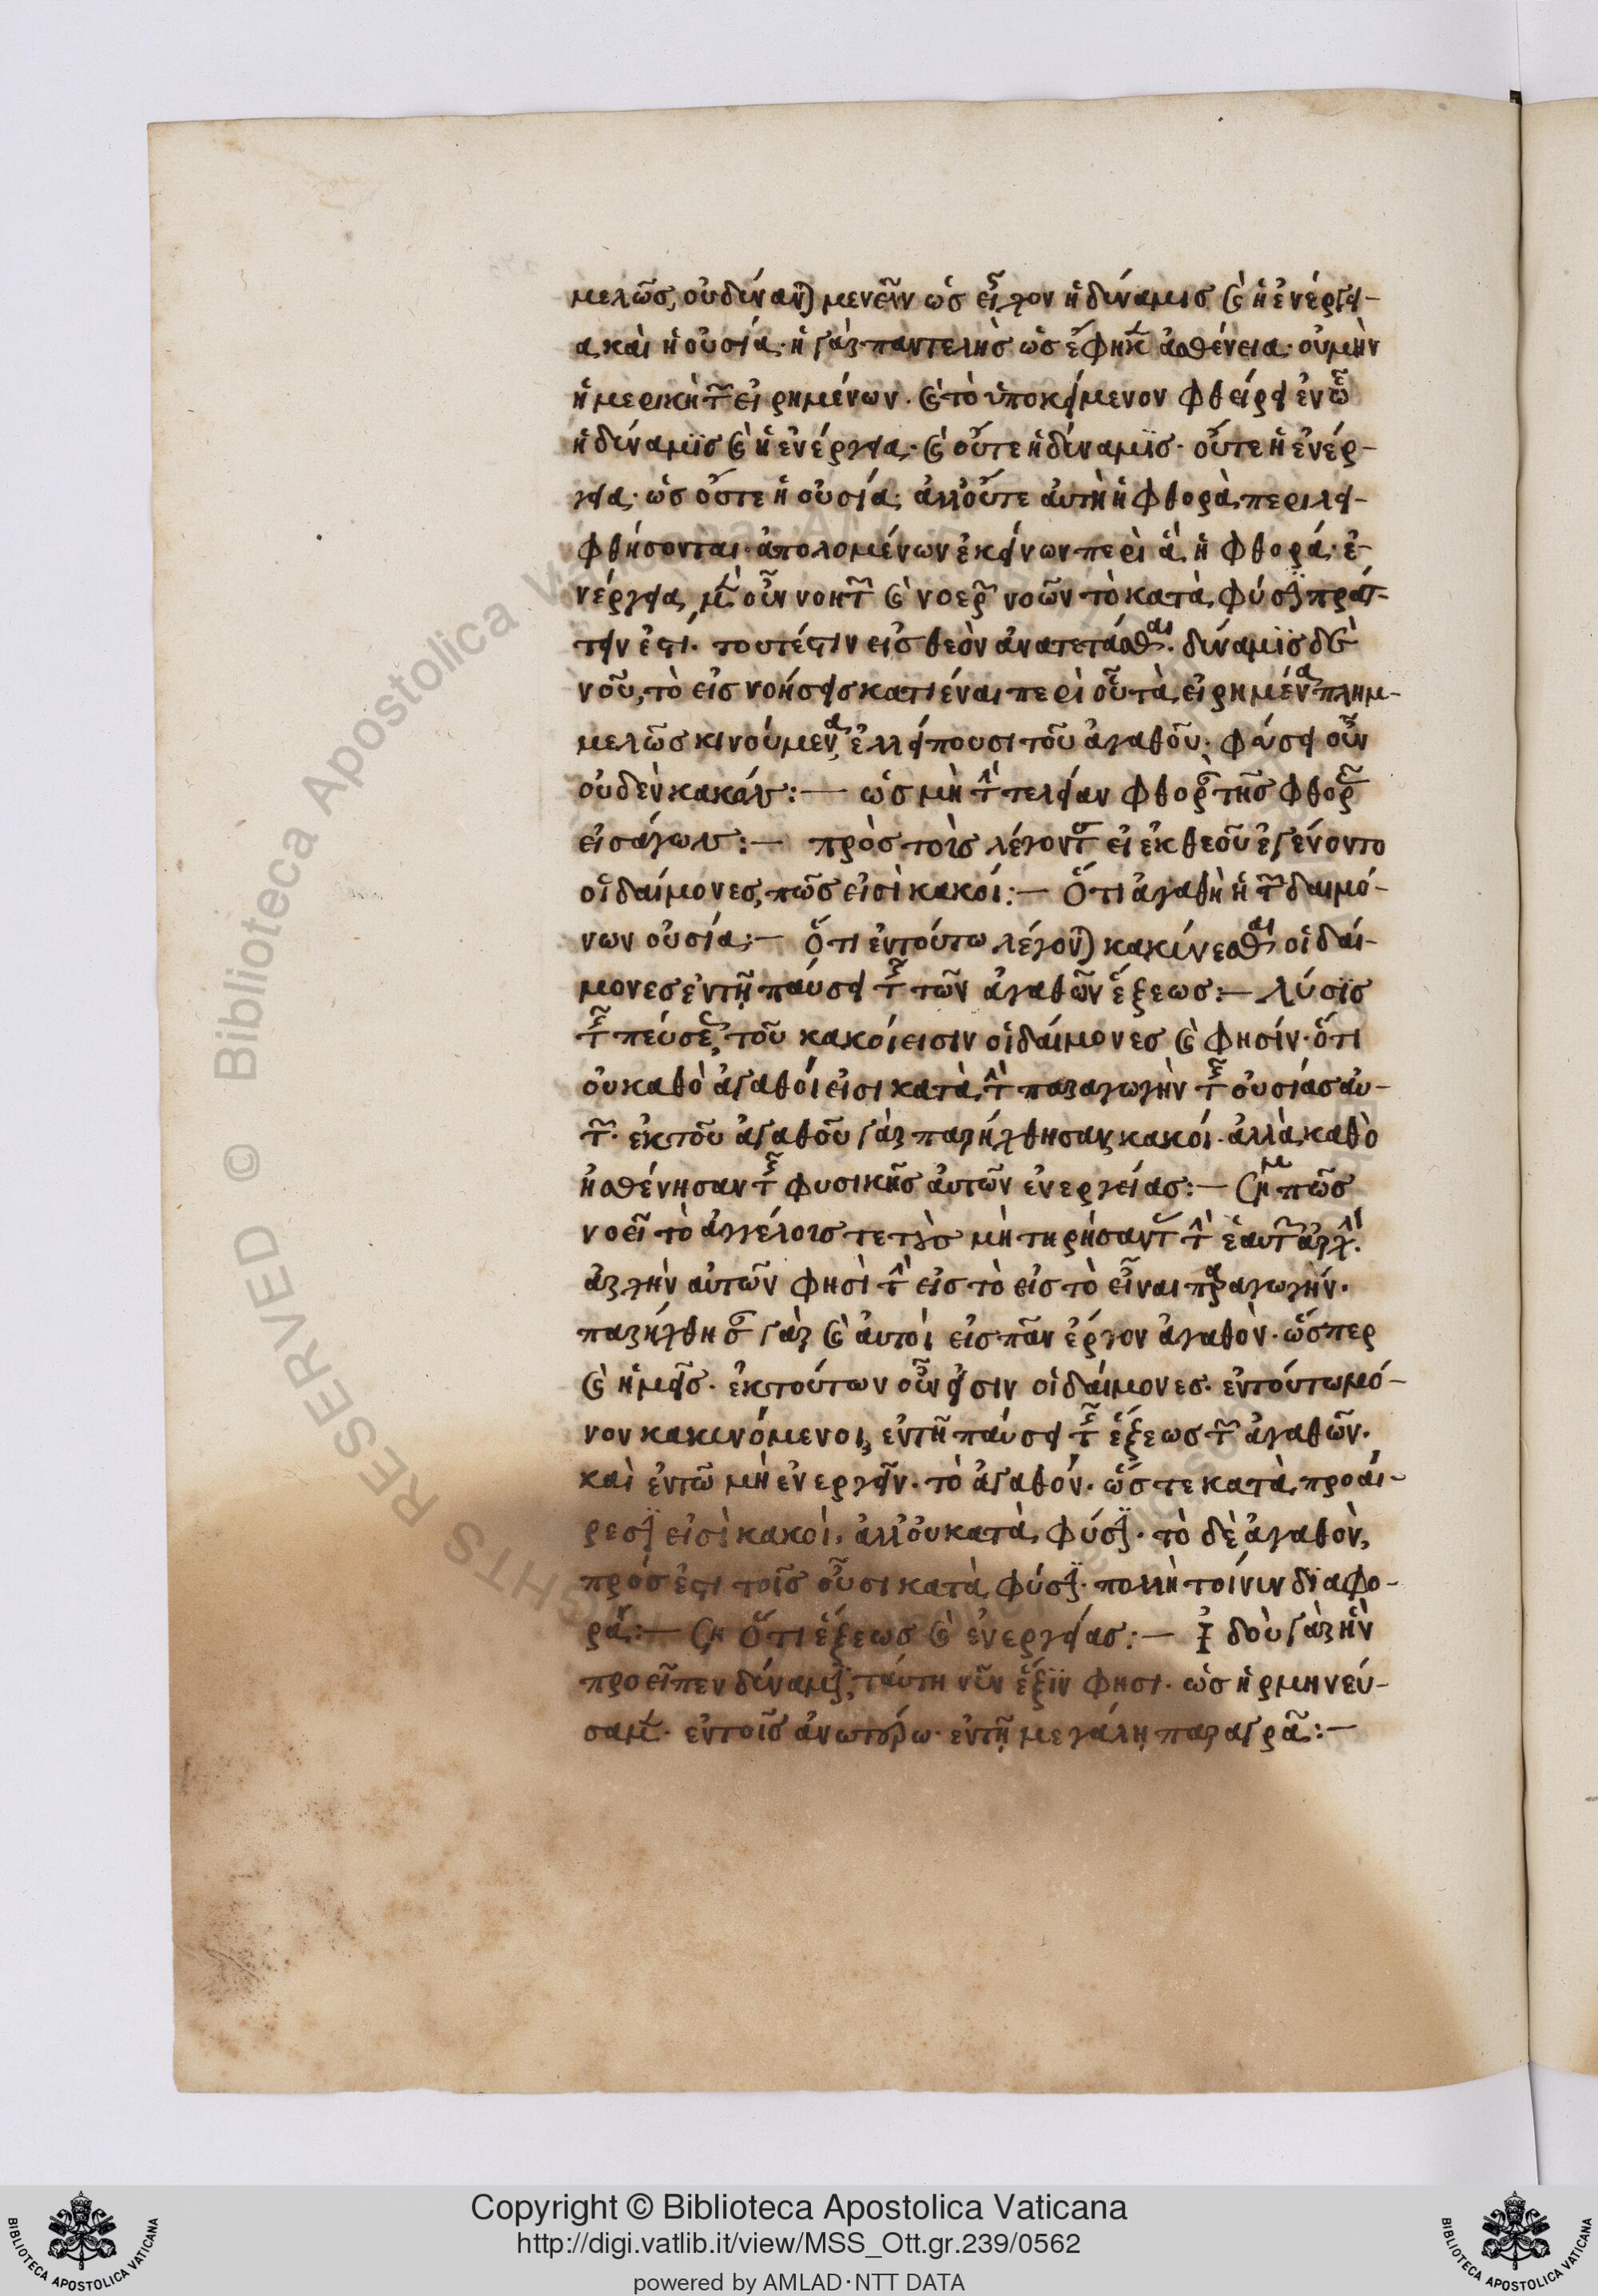 μελῶς, οὐ δύνανται μένειν ὡς εἶχον ἡ δύναμις καὶ ἡ ἐνέργει-
α καὶ ἡ οὐσία· ἡ γὰρ παντελὴς ὡς ἔφηκεν ἀσθένεια· οὐ μὴν
ἡ μερικὴ τῶν εἰρημένων. καὶ τὸ ὑποκείμενον φθείρει ἐν ᾧ
ἡ δύναμϊς καὶ ἡ ἐνέργεια· καὶ οὔτε ἡ δύναμϊς· οὔτε ἡ ἐνέρ-
γεια· ὡς οὔτε ἡ οὐσία· ἀλλ' οὔτε αὐτὴ ἡ φθορὰ περιλει-
φθήσονται· ἀπολομένων ἐκείνων περὶ ἃ ἡ φθορά· ἐ-
νέργεια μὲν οὖν νοητῶν καὶ νοερῶν νοῶν τὸ κατὰ φύσϊν πράτ-
τειν ἐστί. τουτέστιν εἰς θεὸν ἀνατετάσθαι. δύναμϊς δὲ
νοῦ, τὸ εἰς νοήσεις κατιέναι περὶ οὗ τὰ εἰρημένα πλημ-
μελῶς κινούμενα, ἐλλείπουσι τοῦ ἀγαθοῦ· φύσει οὖν
οὐδὲν κακόν:— ὡς μὴ τὴν τελείαν φθορὰν τῆς φθορᾶς
εἰσάγων:— πρὸς τοὺς λέγοντας εἰ ἐκ θεοῦ ἐγένοντο
οἱ δαίμονες, πῶς εἰσὶ κακοί:— Ὅτι ἀγαθὴ ἡ τῶν δαιμό-
νων οὐσία:— Ὅτι ἐν τούτω λέγονται κακύνεσθαι οἱ δαί-
μονες ἐν τῇ παύσει τῆς τῶν ἀγαθῶν ἕξεως:— λύσϊς
τῆς πεύσεως, τοῦ κακοί εισιν οἱ δαίμονες καὶ φησίν· ὅτι
οὐ καθὸ ἀγαθοί εἰσι κατὰ τὴν παραγωγὴν τῆς οὐσίας αὐ-
τῶν. ἐκ τοῦ ἀγαθοῦ γὰρ παρήχθησαν κακοί. ἀλλὰ καθὸ
ἠσθένησαν τῆς φυσικῆς αὐτῶν ἐνεργείας:— Σημείωσαι πῶς
νοεῖ τὸ ἀγγέλους τε τοὺς μὴ τηρήσαντας τὴν ἑαυτῶν ἀρχήν.
ἀρχὴν αὐτῶν φησὶ τὴν εἰς τὸ εἰς τὸ εἶναι παραγωγήν.
παρήχθησαν γὰρ καὶ αὐτοὶ εἰς πᾶν ἔργον ἀγαθὸν. ὥσπερ
καὶ ἡμεῖς. ἐκ τούτων οὖν εἰσιν οἱ δαίμονες. ἐν τούτω μό-
νον κακυνόμενοι, ἐν τῆ παύσει τῆς ἕξεως τῶν ἀγαθῶν.
καὶ ἐν τῶ μὴ ἐνεργεῖν. τὸ ἀγαθόν. ὥστε κατὰ προαί-
ρεσϊν εἰσὶ κακοὶ. ἀλλ' οὐ κατὰ φύσϊν. τὸ δὲ ἀγαθὸν,
πρόσεστι τοῖς οὖσι κατὰ φύσϊν. πολλὴ τοίνυν διαφο-
ρά:— Ση Ὅτι ἕξεως καὶ ἐνεργείας:— Ἰδοὺ γὰρ ἣν
προεῖπεν δύναμϊν, ταύτη νῦν ἕξϊν φησι. ὡς ἡρμηνεύ-
σαμεν. ἐν τοῖς ἀνωτέρω. ἐν τῇ μεγάλῃ παραγρα:—
Copyright © Biblioteca Apostolica Vaticana
http://digi.vatlib.it/view/MSS_Ott.gr.239/0562
powered by AMLAD·NTT DATA